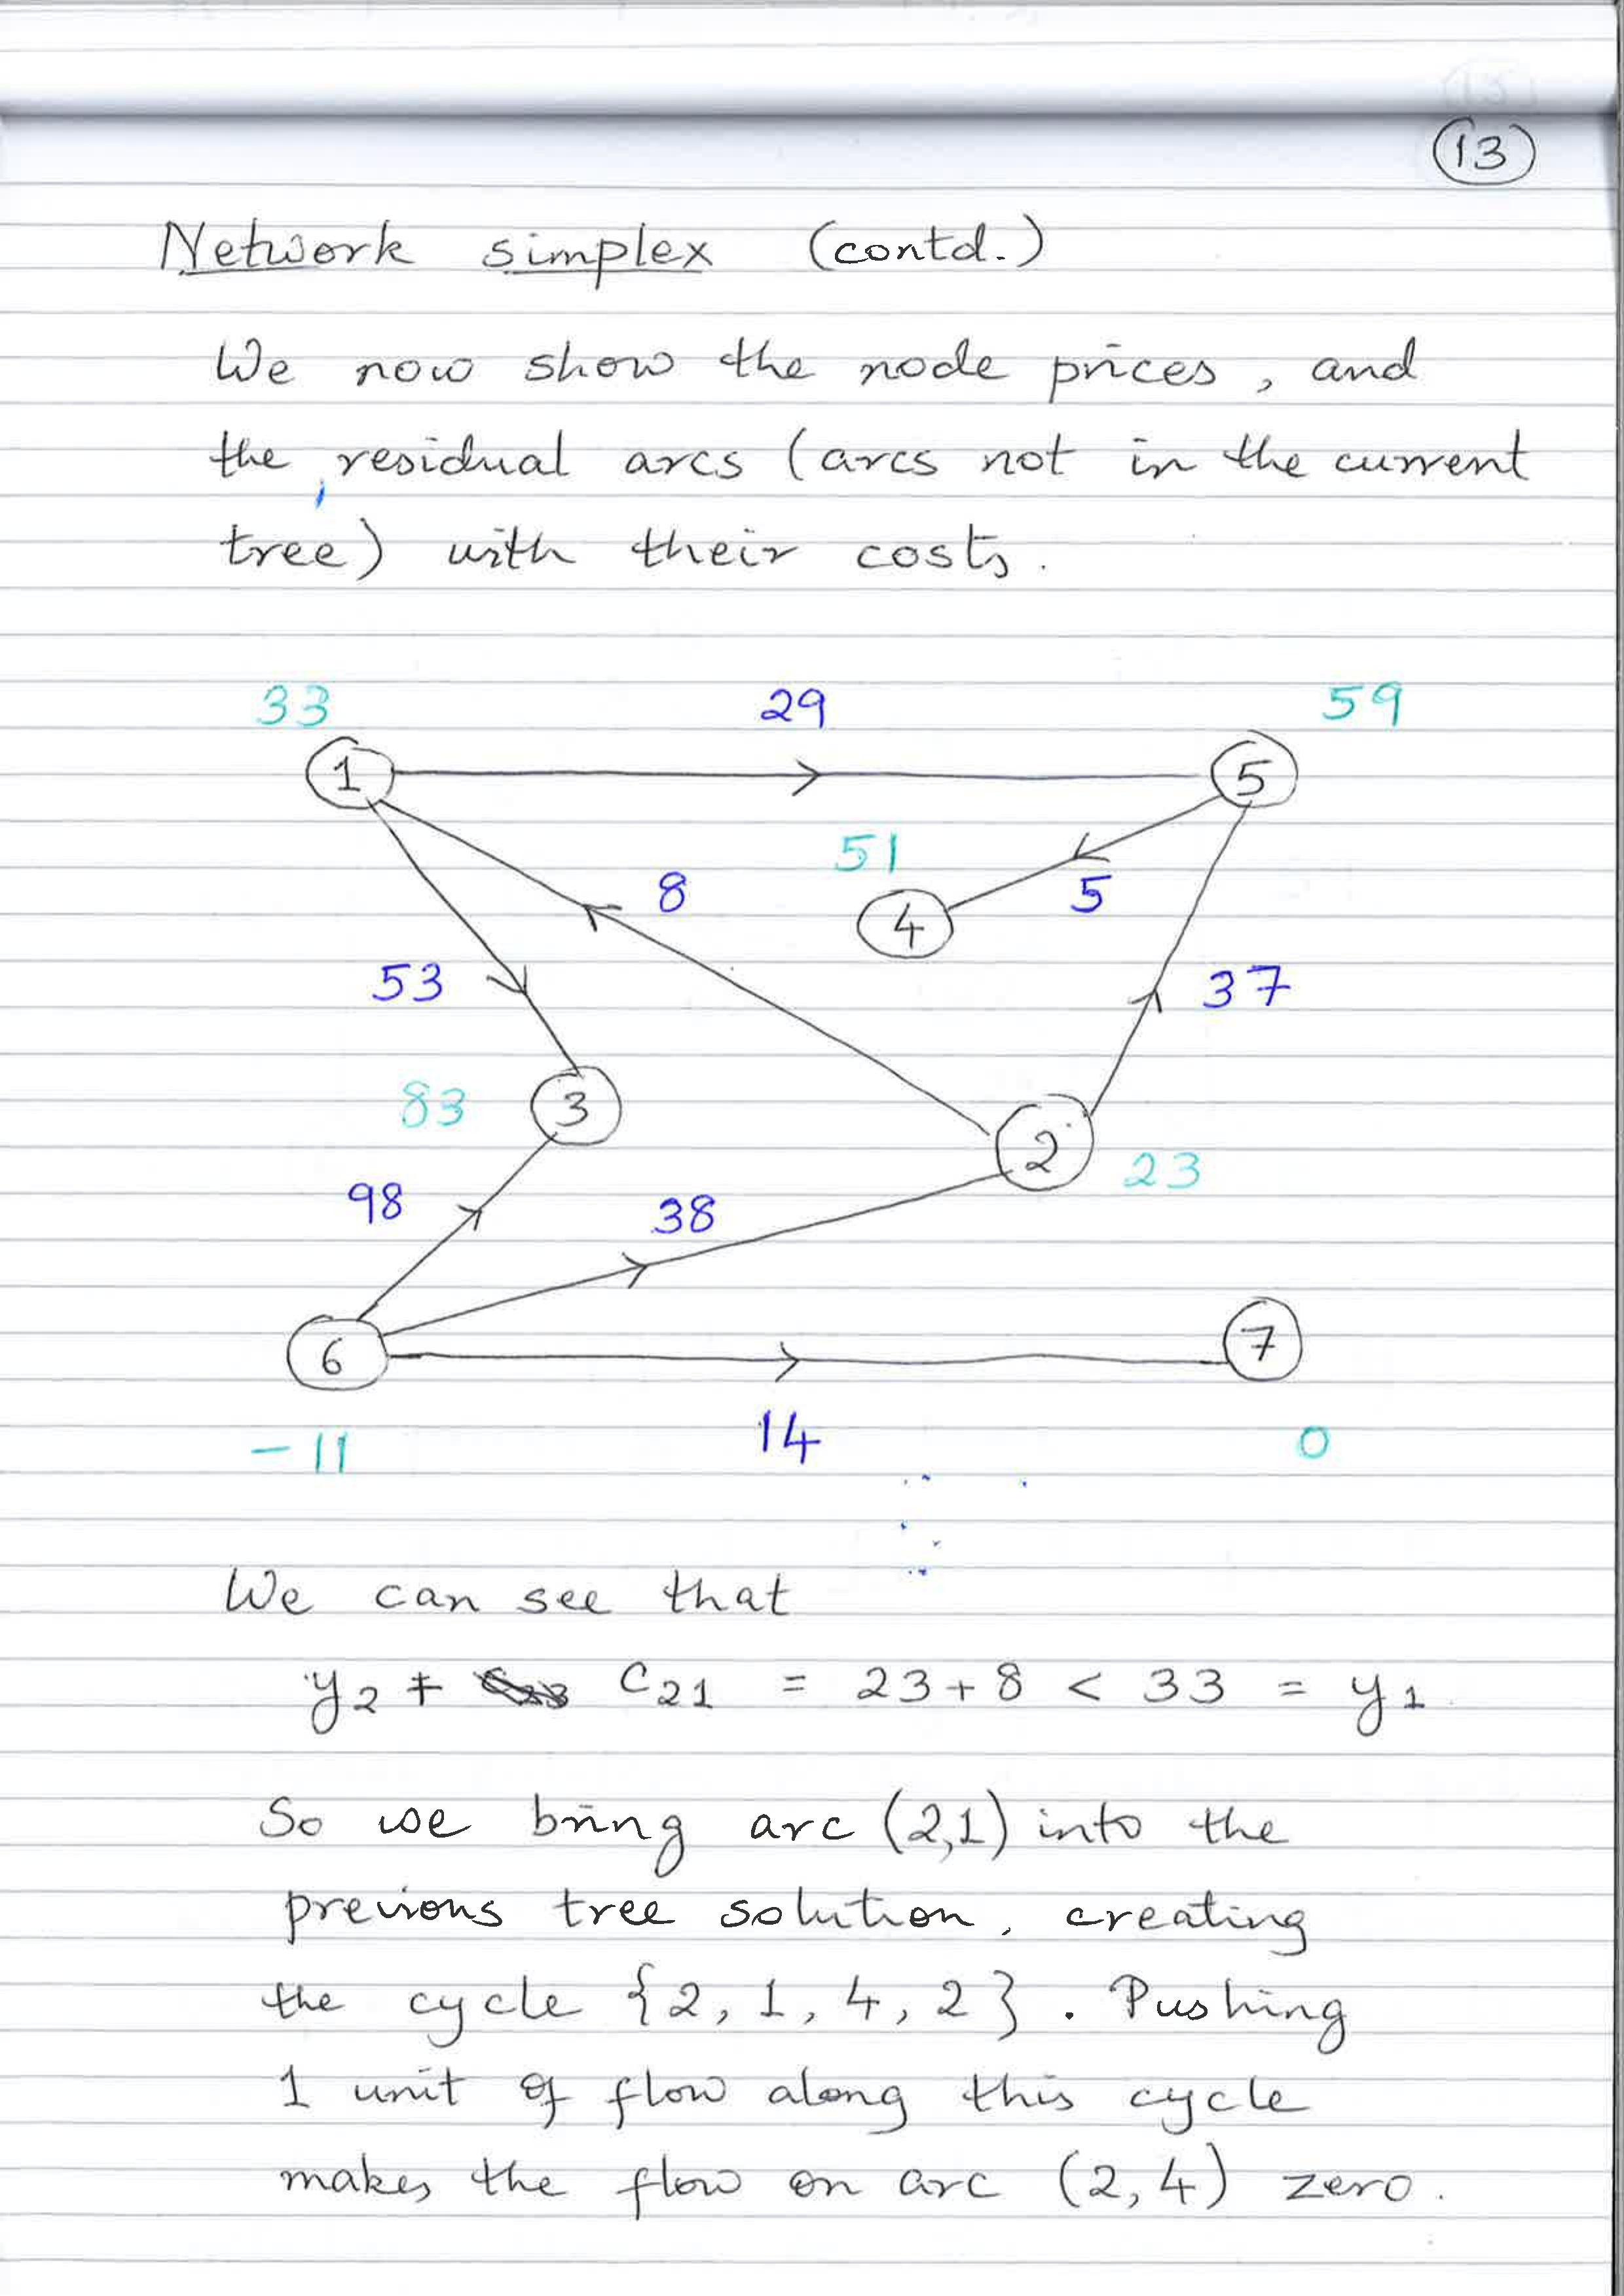 13
Network simplex (contd.)
We now show the node prices, and
the residual arcs (arcs not in the current
tree) with their costs.
33 29 59
1 5
51
8 5
4
53 37
83 3
2
23
98 38
6 7
-11 14 0
We can see that
y2 + C21 = 23+8 < 33 = y1
So we bring arc (2,1) into the
previous tree solution, creating
the cycle {2, 1, 4, 2}. Pushing
1 unit of flow along this cycle
makes the flow on arc (2,4) zero.